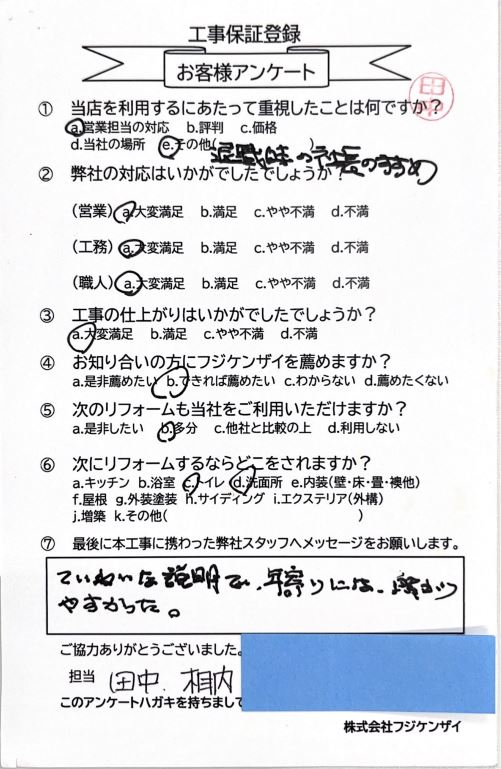 工事保証登録
お客様アンケート
田中
① 当店を利用するにあたって重視したことは何ですか?
a.営業担当の対応 b.評判 c.価格
d.当社の場所 e.その他( )
の社長のすすめ
② 弊社の対応はいかがでしたでしょうか?
(営業) a.大変満足 b.満足 c.やや不満 d.不満
(工務) a.大変満足 b.満足 c.やや不満 d.不満
(職人) a.大変満足 b.満足 c.やや不満 d.不満
③ 工事の仕上がりはいかがでしたでしょうか?
a.大変満足 b.満足 c.やや不満 d.不満
④ お知り合いの方にフジケンザイを薦めますか?
a.是非薦めたい b.できれば薦めたい c.わからない d.薦めたくない
⑤ 次のリフォームも当社をご利用いただけますか?
a.是非したい b.多分 c.他社と比較の上 d.利用しない
⑥ 次にリフォームするならどこをされますか?
a.キッチン b.浴室 c.トイレ d.洗面所 e.内装(壁・床・畳・襖他)
f.屋根 g.外装塗装 h.サイディング i.エクステリア(外構)
j.増築 k.その他( )
⑦ 最後に本工事に携わった弊社スタッフへメッセージをお願いします。
ていねいな説明で、年寄りには、
やすかった。
ご協力ありがとうございました。
担当 田中、相内
このアンケートハガキを持ちまして
株式会社フジケンザイ